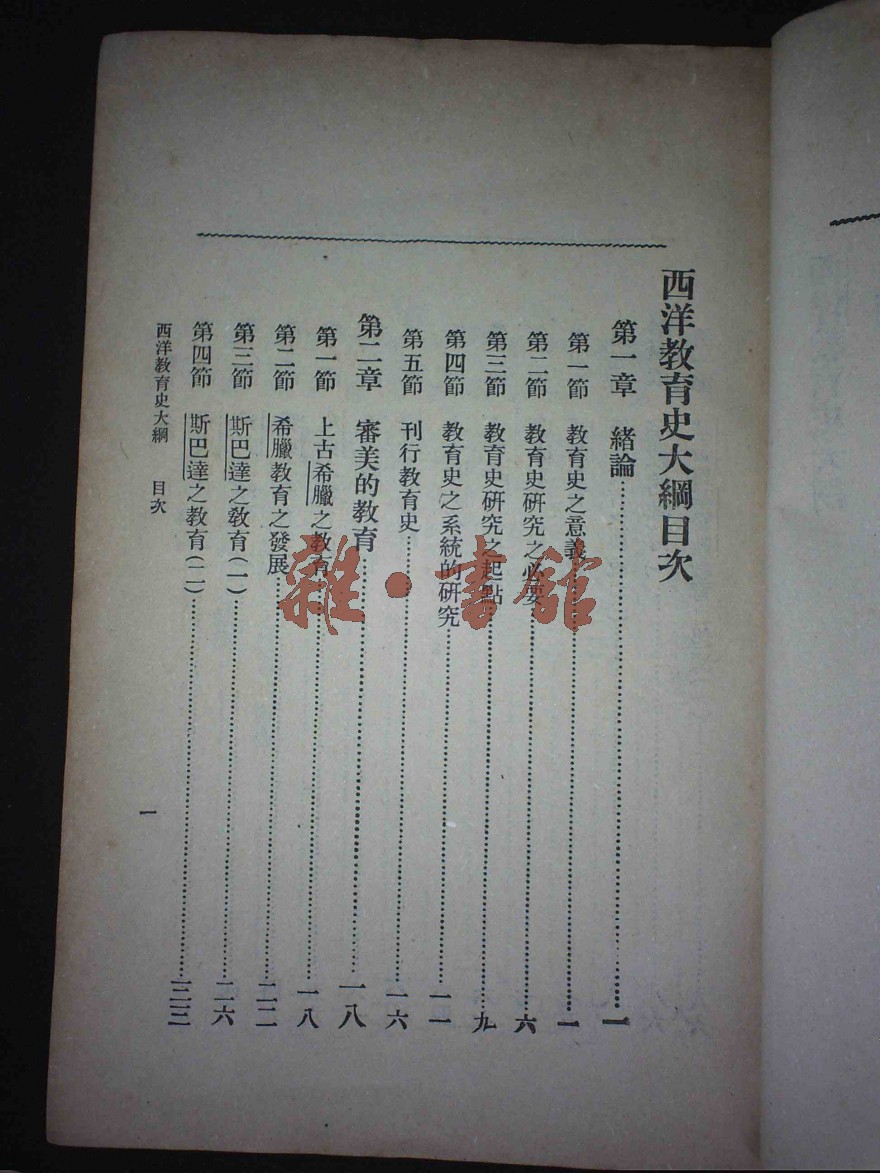 西洋教育史大綱目次
第一章　緒論……一
第一節　教育史之意義……一
第二節　教育史研究之必要……六
第三節　教育史研究之起點……九
第四節　教育史之系統的研究……一一
第五節　刊行教育史……一六
第二章　審美的教育……一八
第一節　上古希臘之教育……一八
第二節　希臘教育之發展……二二
第三節　斯巴達之教育(一)……二六
第四節　斯巴達之教育(二)……三三
西洋教育史大綱　目次
一
雜·書館